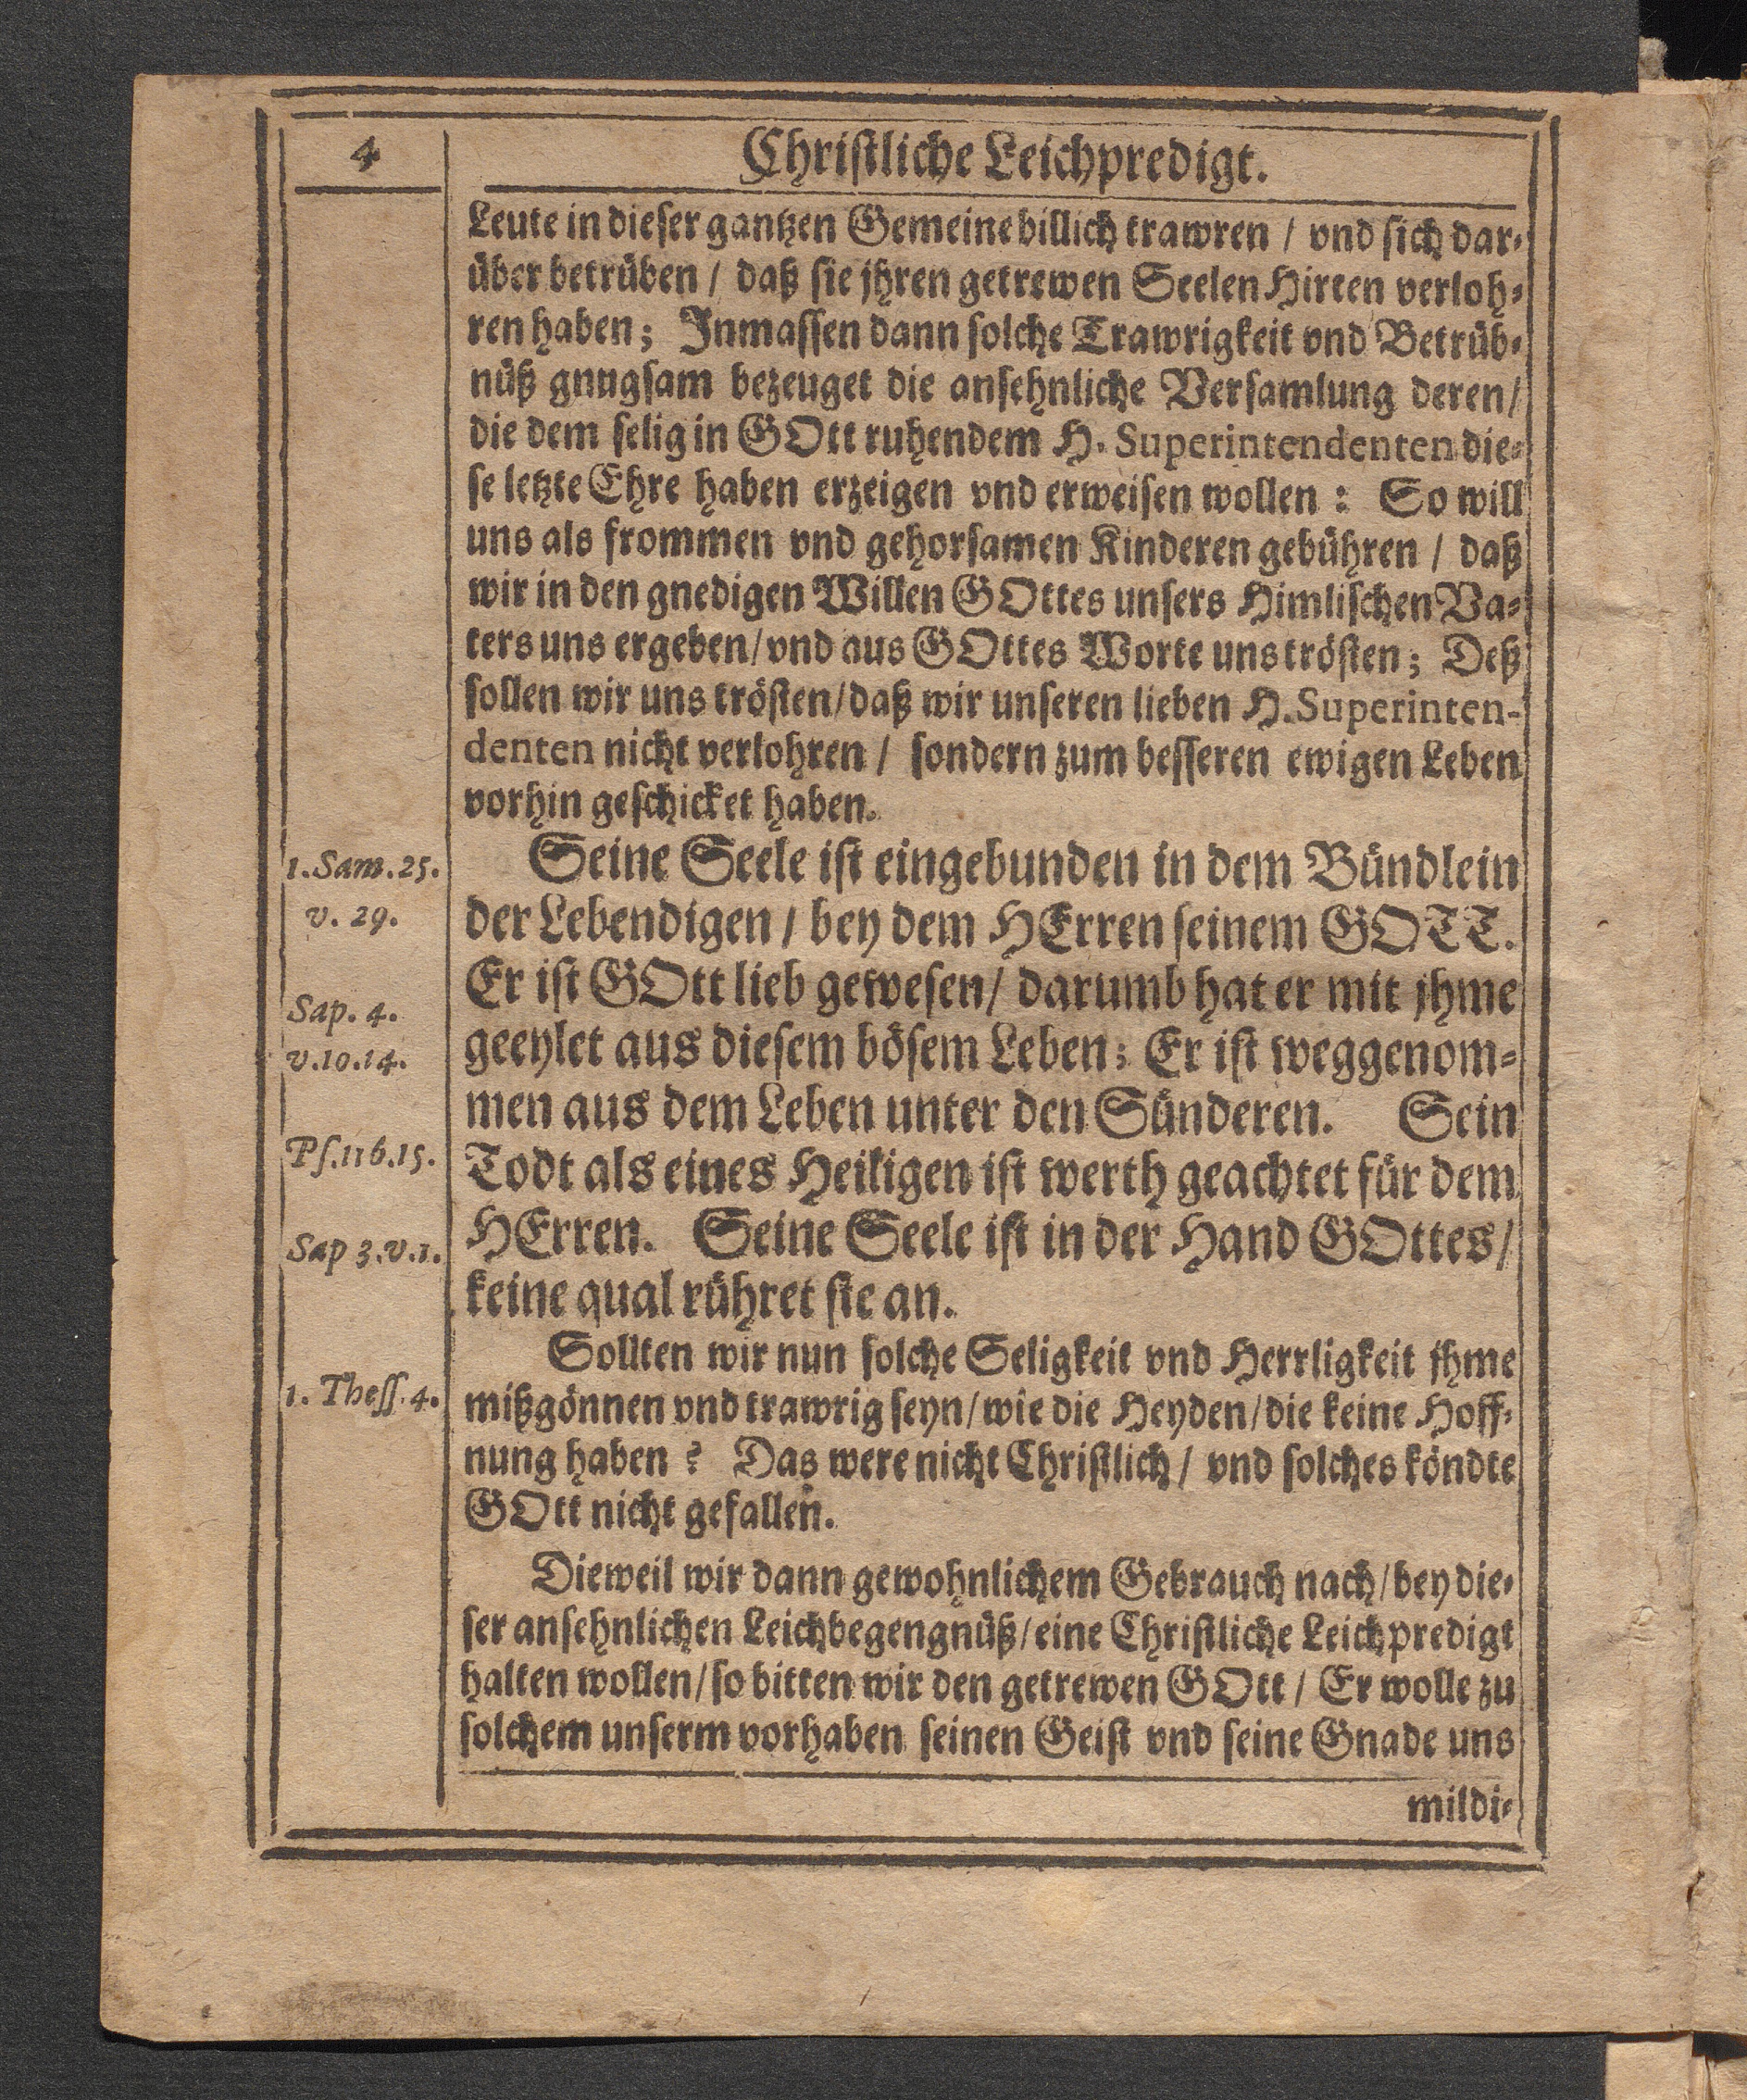 4
Christliche Leichpredigt.
Leute in dieser gantzen Gemeine billich trawren / vnd sich dar-
über betrüben / daß sie jhren getrewen Seelen Hirten verloh-
ren haben; Inmassen dann solche Trawrigkeit vnd Betrüb-
nüß gnugsam bezeuget die ansehnliche Versamlung deren/
die dem selig in GOtt ruhendem H. Superintendenten die-
se letzte Ehre haben erzeigen vnd erweisen wollen: So will
uns als frommen vnd gehorsamen Kinderen gebühren / daß
wir in den gnedigen Willen GOttes unsers Himlischen Va-
ters uns ergeben/ vnd aus GOttes Worte uns trösten; Deß
sollen wir uns trösten/ daß wir unseren lieben H. Superinten-
denten nicht verlohren / sondern zum besseren ewigen Leben
vorhin geschicket haben.
1. Sam. 25.
v. 29.
Seine Seele ist eingebunden in dem Bündlein
der Lebendigen / bey dem HErren seinem GOTT.
Er ist GOtt lieb gewesen/ darumb hat er mit jhme
Sap. 4.
v. 10. 14.
geeylet aus diesem bösem Leben; Er ist weggenom-
men aus dem Leben unter den Sünderen. Sein
Ps. 116. 15.
Todt als eines Heiligen ist werth geachtet für dem
Sap 3. v. 1.
HErren. Seine Seele ist in der Hand GOttes/
keine qual rühret sie an.
Sollten wir nun solche Seligkeit vnd Herrligkeit jhme
1. Thess. 4.
mißgönnen vnd trawrig seyn/ wie die Heyden/ die keine Hoff-
nung haben? Das were nicht Christlich / vnd solches köndte
GOtt nicht gefallen.
Dieweil wir dann gewohnlichem Gebrauch nach/ bey die-
ser ansehnlichen Leichbegengnüß/ eine Christliche Leichpredigt
halten wollen/ so bitten wir den getrewen GOtt / Er wolle zu
solchem unserm vorhaben seinen Geist vnd seine Gnade uns
mildi-